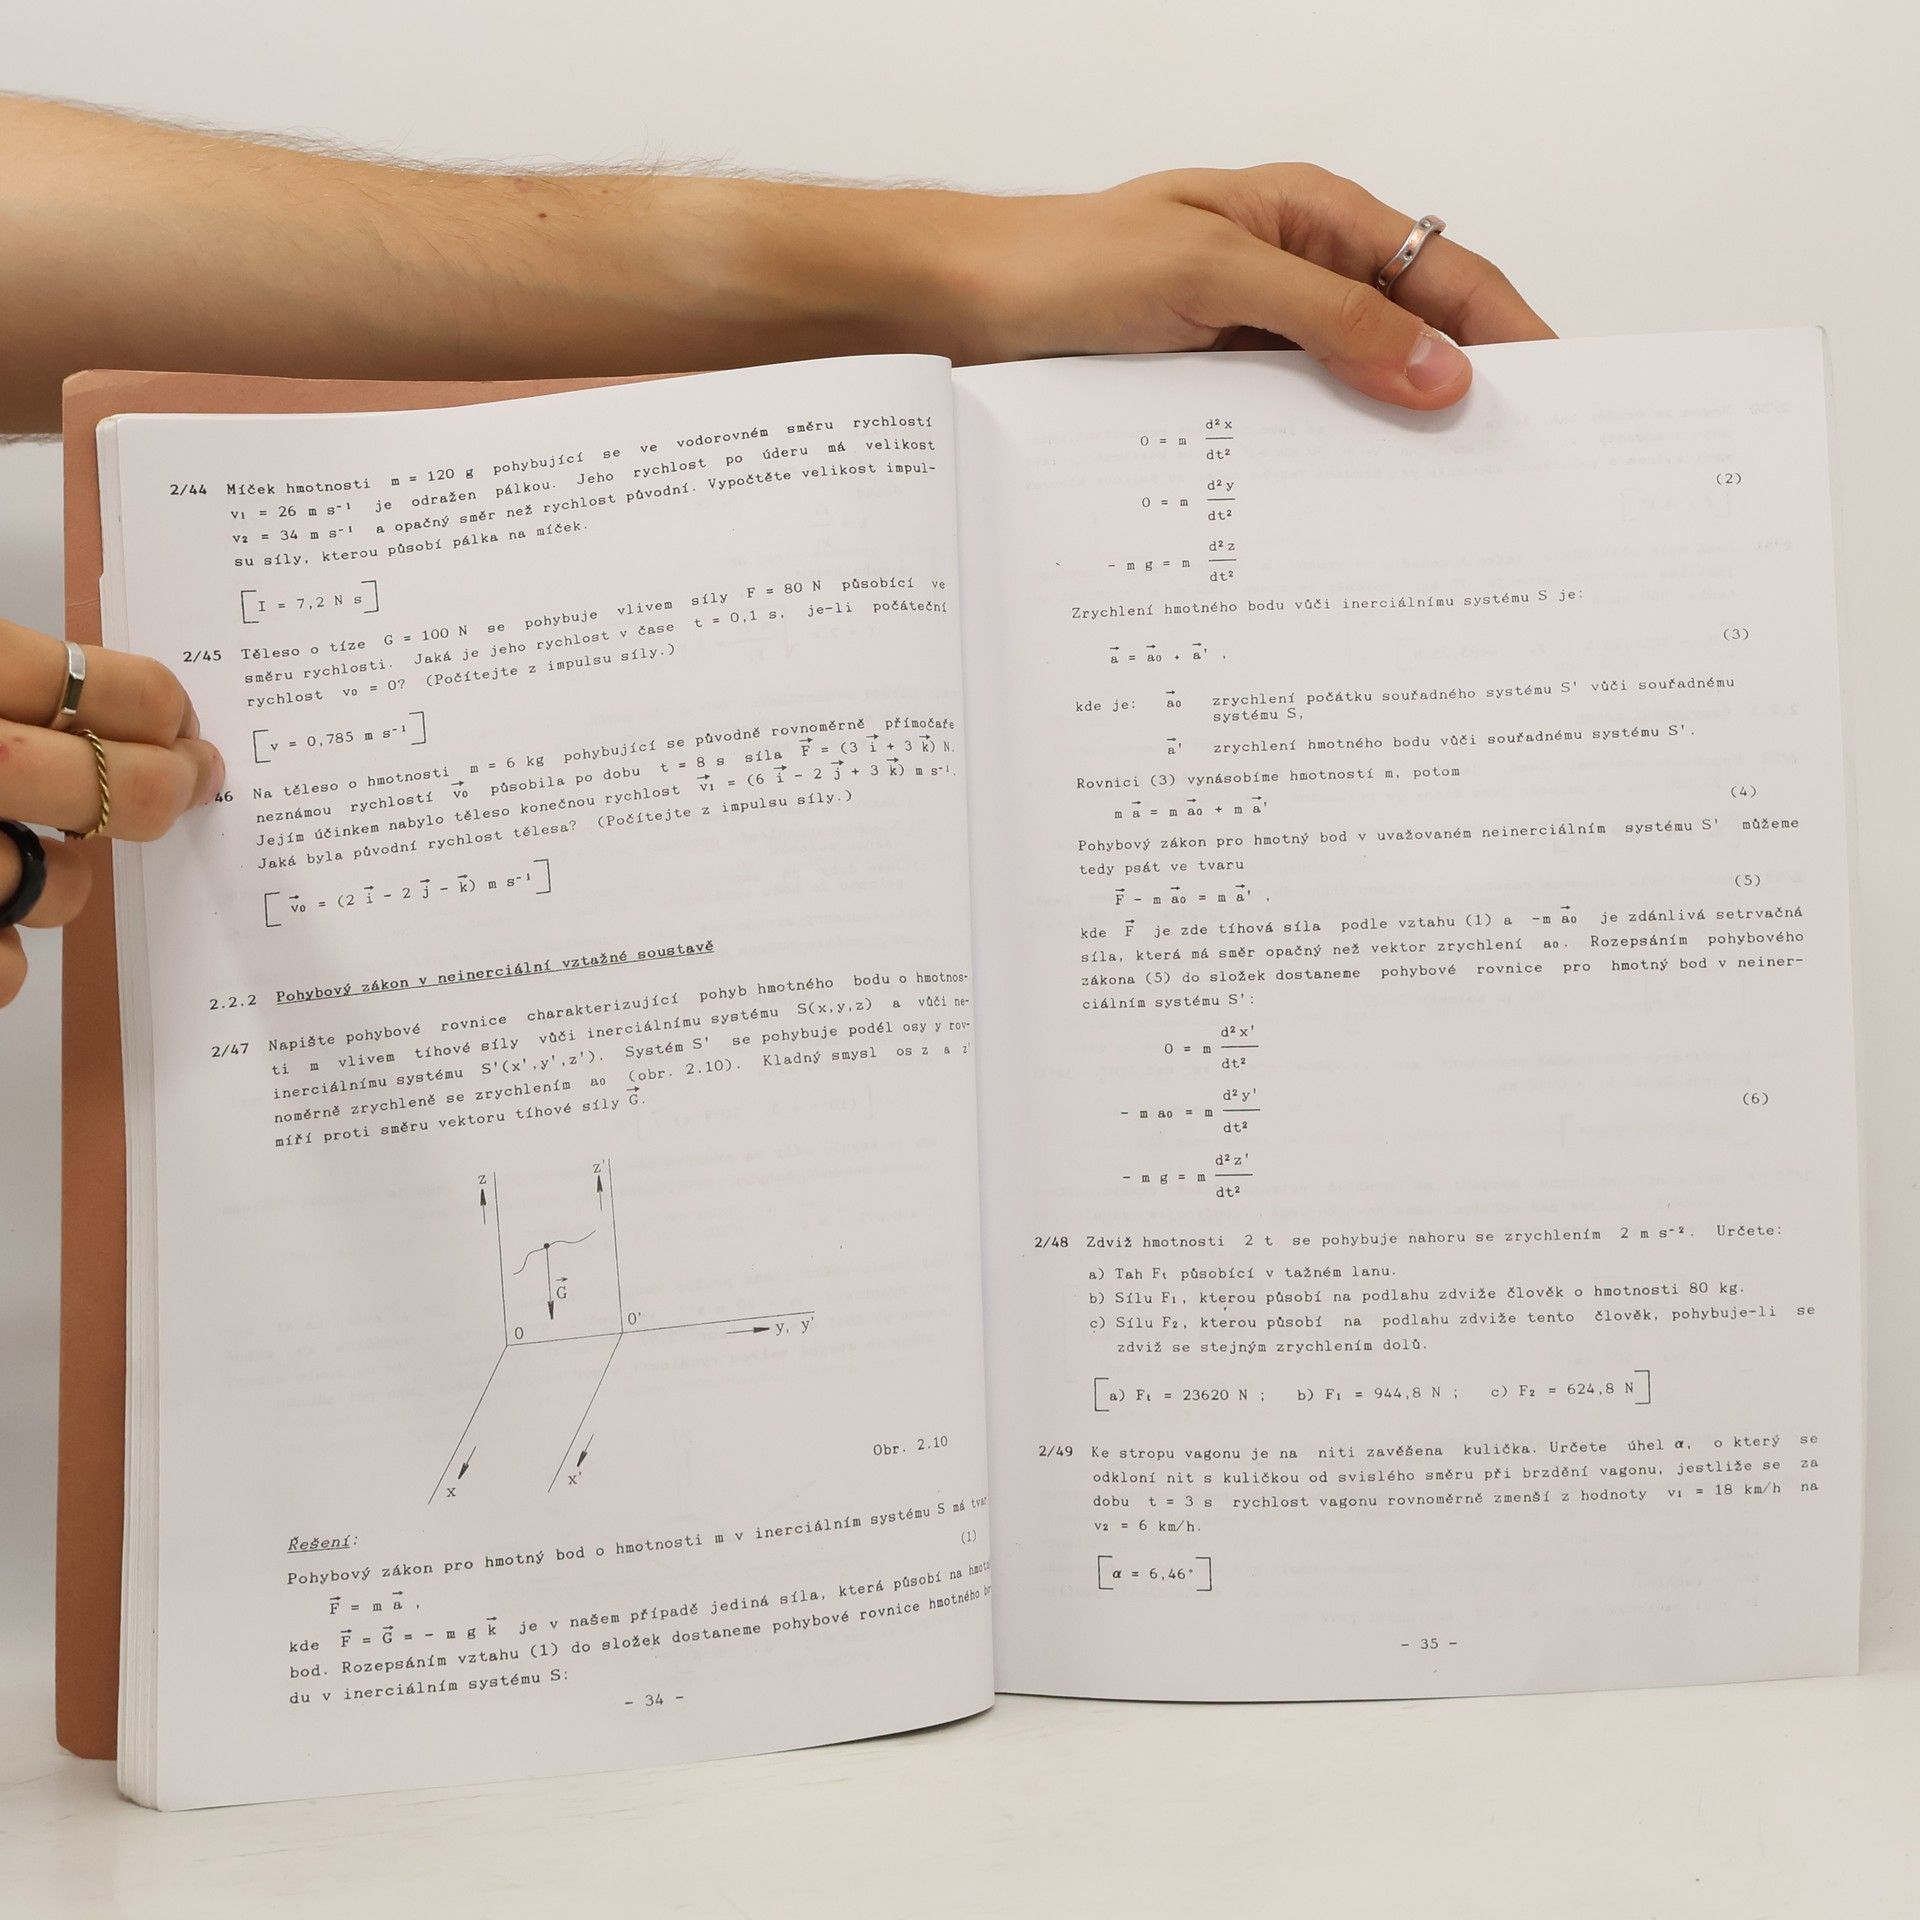 2/44 Míček hmotnosti m = 120 g pohybující se ve vodorovném směru rychlostí
v₁ = 26 m s⁻¹ je odražen pálkou. Jeho rychlost po úderu má velikost
v₂ = 34 m s⁻¹ a opačný směr než rychlost původní. Vypočtěte velikost impul-
su síly, kterou působí pálka na míček.
[I = 7,2 N s]
2/45 Těleso o tíze G = 100 N se pohybuje vlivem síly F = 80 N působící ve
směru rychlosti. Jaká je jeho rychlost v čase t = 0,1 s, je-li počáteční
rychlost v₀ = 0? (Počítejte z impulsu síly.)
[v = 0,785 m s⁻¹]
46 Na těleso o hmotnosti m = 6 kg pohybující se původně rovnoměrně přímočaře
neznámou rychlostí v⃗₀ působila po dobu t = 8 s síla F⃗ = (3 i⃗ + 3 k⃗) N.
Jejím účinkem nabylo těleso konečnou rychlost v⃗₁ = (6 i⃗ - 2 j⃗ + 3 k⃗) m s⁻¹.
Jaká byla původní rychlost tělesa? (Počítejte z impulsu síly.)
[v⃗₀ = (2 i⃗ - 2 j⃗ - k⃗) m s⁻¹]
2.2.2 Pohybový zákon v neinerciální vztažné soustavě
2/47 Napište pohybové rovnice charakterizující pohyb hmotného bodu o hmotnos-
ti m vlivem tíhové síly vůči inerciálnímu systému S(x,y,z) a vůči ne-
inerciálnímu systému S'(x',y',z'). Systém S' se pohybuje podél osy y rov-
noměrně zrychleně se zrychlením a₀ (obr. 2.10). Kladný smysl os z a z'
míří proti směru vektoru tíhové síly G⃗.
z z'
G⃗
O O' y, y'
x x'
Obr. 2.10
Řešení:
Pohybový zákon pro hmotný bod o hmotnosti m v inerciálním systému S má tvar
F⃗ = m a⃗ , (1)
kde F⃗ = G⃗ = - m g k⃗ je v našem případě jediná síla, která působí na
bod. Rozepsáním vztahu (1) do složek dostaneme pohybové rovnice hmotného
du v inerciálním systému S:
- 34 -
0 = m d²x/dt²
0 = m d²y/dt² (2)
- m g = m d²z/dt²
Zrychlení hmotného bodu vůči inerciálnímu systému S je:
a⃗ = a⃗₀ + a⃗' , (3)
kde je: a⃗₀ zrychlení počátku souřadného systému S' vůči souřadnému
systému S,
a⃗' zrychlení hmotného bodu vůči souřadnému systému S'.
Rovnici (3) vynásobíme hmotností m, potom
m a⃗ = m a⃗₀ + m a⃗' (4)
Pohybový zákon pro hmotný bod v uvažovaném neinerciálním systému S' můžeme
tedy psát ve tvaru
F⃗ - m a⃗₀ = m a⃗' , (5)
kde F⃗ je zde tíhová síla podle vztahu (1) a -m a⃗₀ je zdánlivá setrvačná
síla, která má směr opačný než vektor zrychlení a₀. Rozepsáním pohybového
zákona (5) do složek dostaneme pohybové rovnice pro hmotný bod v neiner-
ciálním systému S':
0 = m d²x'/dt²
- m a₀ = m d²y'/dt² (6)
- m g = m d²z'/dt²
2/48 Zdviž hmotnosti 2 t se pohybuje nahoru se zrychlením 2 m s⁻². Určete:
a) Tah Fₜ působící v tažném lanu.
b) Sílu F₁, kterou působí na podlahu zdviže člověk o hmotnosti 80 kg.
c) Sílu F₂, kterou působí na podlahu zdviže tento člověk, pohybuje-li se
zdviž se stejným zrychlením dolů.
[a) Fₜ = 23620 N ; b) F₁ = 944,8 N ; c) F₂ = 624,8 N]
2/49 Ke stropu vagonu je na niti zavěšena kulička. Určete úhel α, o který se
odkloní nit s kuličkou od svislého směru při brzdění vagonu, jestliže se za
dobu t = 3 s rychlost vagonu rovnoměrně zmenší z hodnoty v₁ = 18 km/h na
v₂ = 6 km/h.
[α = 6,46°]
- 35 -